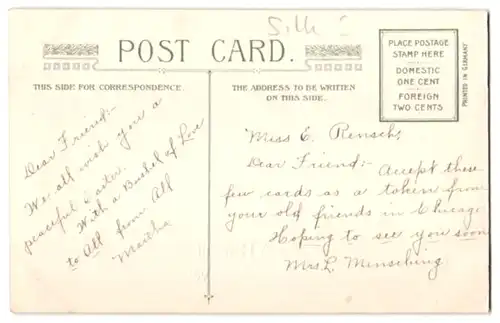 Silk
POST CARD.
PLACE POSTAGE
STAMP HERE
DOMESTIC
ONE CENT
FOREIGN
TWO CENTS
PRINTED IN GERMANY
THIS SIDE FOR CORRESPONDENCE.
THE ADDRESS TO BE WRITTEN
ON THIS SIDE.
Dear Friend:-
We all wish you a
peaceful Easter.
With a Bushel of Love
to All from All
Martha
Miss E. Rensch,
Dear Friend:- Accept these
few cards as a token from
your old friends in Chicago
Hoping to see you soon
Mrs. L. Mensching